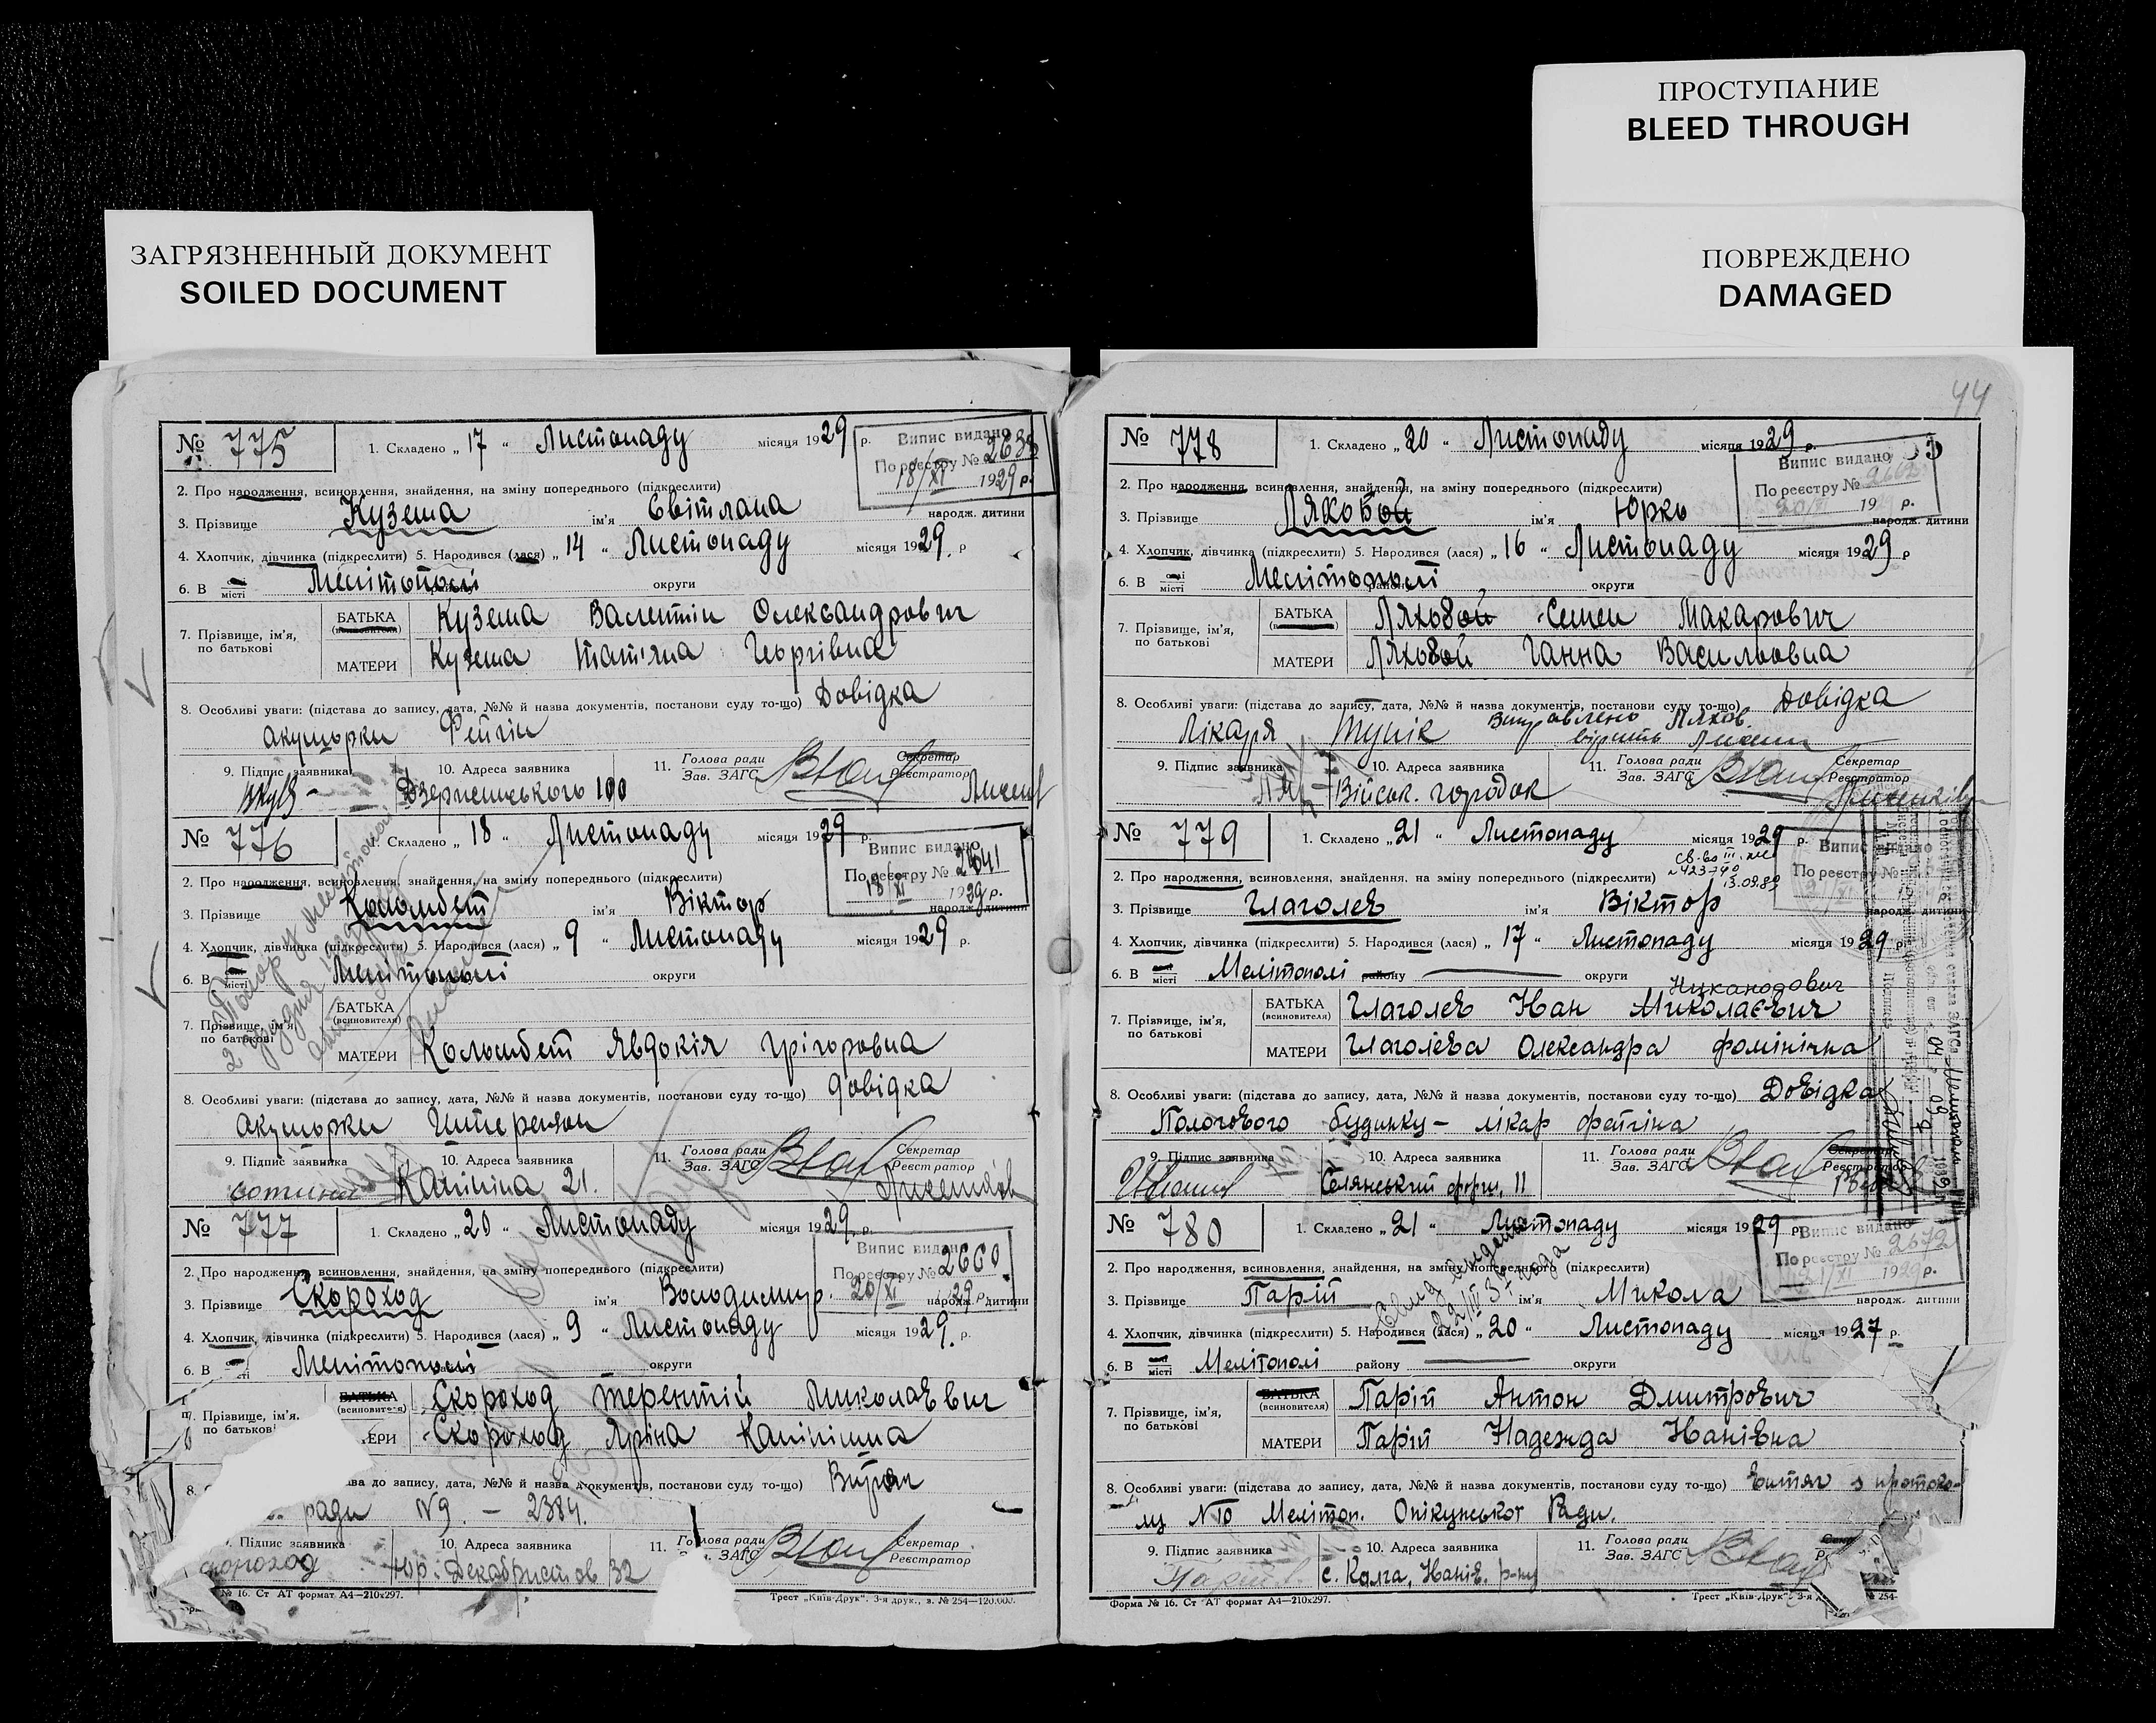 ПРОСТУПАНИЕ
BLEED THROUGH
ЗАГРЯЗНЕННЫЙ ДОКУМЕНТ
SOILED DOCUMENT
ПОВРЕЖДЕНО
DAMAGED
№ 775 1. Складено „ 17 “ Листопаду місяця 1929 р.
Випис видано
По реєстру № 2638
18/XI 1929 р.
2. Про народження, всиновлення, знайдення, на зміну попереднього (підкреслити)
3. Прізвище Кузема ім'я Світлана народж. дитини
4. Хлопчик, дівчинка (підкреслити) 5. Народився (лася) „ 14 “ Листопаду місяця 1929 р
6. В місті Мелітополі округи
7. Прізвище, ім'я, по батькові БАТЬКА Кузема Валентін Олександрович
МАТЕРИ Кузема Татіяна Георгівна
8. Особливі уваги: (підстава до запису, дата, №№ й назва документів, постанови суду то-що) Довідка
акушорки Фейгін
9. Підпис заявника 10. Адреса заявника 11. Голова ради Зав. ЗАГС Секретар Реєстратор
Дзержинського 190
№ 776 1. Складено „ 18 “ Листопаду місяця 1929 р.
Випис видано
По реєстру № 2641
18/XI 1929 р.
2. Про народження, всиновлення, знайдення, на зміну попереднього (підкреслити)
3. Прізвище Коломбет ім'я Віктор народж. дитини
4. Хлопчик, дівчинка (підкреслити) 5. Народився (лася) „ 9 “ Листопаду місяця 1929 р.
6. В місті Мелітополі округи
7. Прізвище, ім'я, по батькові БАТЬКА (всиновителя)
МАТЕРИ Коломбет Явдокія Грігоровна
8. Особливі уваги: (підстава до запису, дата, №№ й назва документів, постанови суду то-що) довідка
акушорки
9. Підпис заявника 10. Адреса заявника 11. Голова ради Зав. ЗАГС Секретар Реєстратор
Калініна 21.
№ 777 1. Складено „ 20 “ Листопаду місяця 1929 р.
Випис видано
По реєстру № 2660
20/XI 1929 р.
2. Про народження, всиновлення, знайдення, на зміну попереднього (підкреслити)
3. Прізвище Скороход ім'я Володимир народж. дитини
4. Хлопчик, дівчинка (підкреслити) 5. Народився (лася) „ 9 “ Листопаду місяця 1929 р.
6. В Мелітополі округи
7. Прізвище, ім'я, по батькові БАТЬКА (всиновителя) Скороход Терентій Миколаєвич
Скороход Яріна Калінішна
8. до запису, дата, №№ й назва документів, постанови суду то-що) Витяг
ради №9. – 2384.
Підпис заявника 10. Адреса заявника 11. Голова ради ЗАГС Секретар Реєстратор
Декабристов 32
№ 16. Ст АТ формат А4—210х297. Трест „Київ-Друк“. 3-я друк., з. № 254—120.000.
44
№ 778 1. Складено „ 20 “ Листопаду місяця 1929 р.
Випис видано
По реєстру № 2662
20/XI 19 р.
2. Про народження, всиновлення, знайдення, на зміну попереднього (підкреслити)
3. Прізвище Ляховой ім'я Юрко народж. дитини
4. Хлопчик, дівчинка (підкреслити) 5. Народився (лася) „ 16 “ Листопаду місяця 1929 р
6. В місті Мелітополі округи
7. Прізвище, ім'я, по батькові БАТЬКА Ляховой Семен Макарович
МАТЕРИ Ляховой Ганна Васильовна
8. Особливі уваги: (підстава до запису, дата, №№ й назва документів, постанови суду то-що) Довідка
Лікаря Тупік Виправлено Ляхов.
вірить
9. Підпис заявника 10. Адреса заявника 11. Голова ради Зав. ЗАГС Секретар Реєстратор
Війсък. городок
№ 779 1. Складено „ 21 “ Листопаду місяця 1929 р.
Випис видано
По реєстру №
2. Про народження, всиновлення, знайдення, на зміну попереднього (підкреслити)
13.09.89
3. Прізвище Глаголєв ім'я Віктор народж. дитини
4. Хлопчик, дівчинка (підкреслити) 5. Народився (лася) „ 17 “ Листопаду місяця 1929 р.
6. В місті Мелітополі району округи
Никанорович
7. Прізвище, ім'я, по батькові БАТЬКА (всиновителя) Глаголєв Іван Миколаєвич
МАТЕРИ Глаголєва Олександра Фомінічна
8. Особливі уваги: (підстава до запису, дата, №№ й назва документів, постанови суду то-що) Довідка
Пологового будинку – лікар Фейгіна
9. Підпис заявника 10. Адреса заявника 11. Голова ради Зав. ЗАГС Секретар Реєстратор
Селянський форш. 11
№ 780 1. Складено „ 21 “ Листопаду місяця 1929 р.
Випис видано
По реєстру № 2672
21/XI 1929 р.
2. Про народження, всиновлення, знайдення, на зміну попереднього (підкреслити)
3. Прізвище Парій ім'я Микола народж. дитини
4. Хлопчик, дівчинка (підкреслити) 5. Народився (лася) „ 20 “ Листопаду місяця 1927 р.
6. В місті Мелітополі району округи
7. Прізвище, ім'я, по батькові БАТЬКА (всиновителя) Парій Антон Дмитрович
МАТЕРИ Парій Надежда Іванівна
8. Особливі уваги: (підстава до запису, дата, №№ й назва документів, постанови суду то-що) Витяг з протоко-
лу №10 Мелітоп. Опікунської Ради.
9. Підпис заявника 10. Адреса заявника 11. Голова ради Зав. ЗАГС
с. Калга, Іванів. р-ну
Форма № 16. Ст АТ формат А4—210х297. Трест „Київ-Друк“ 3-я № 254-